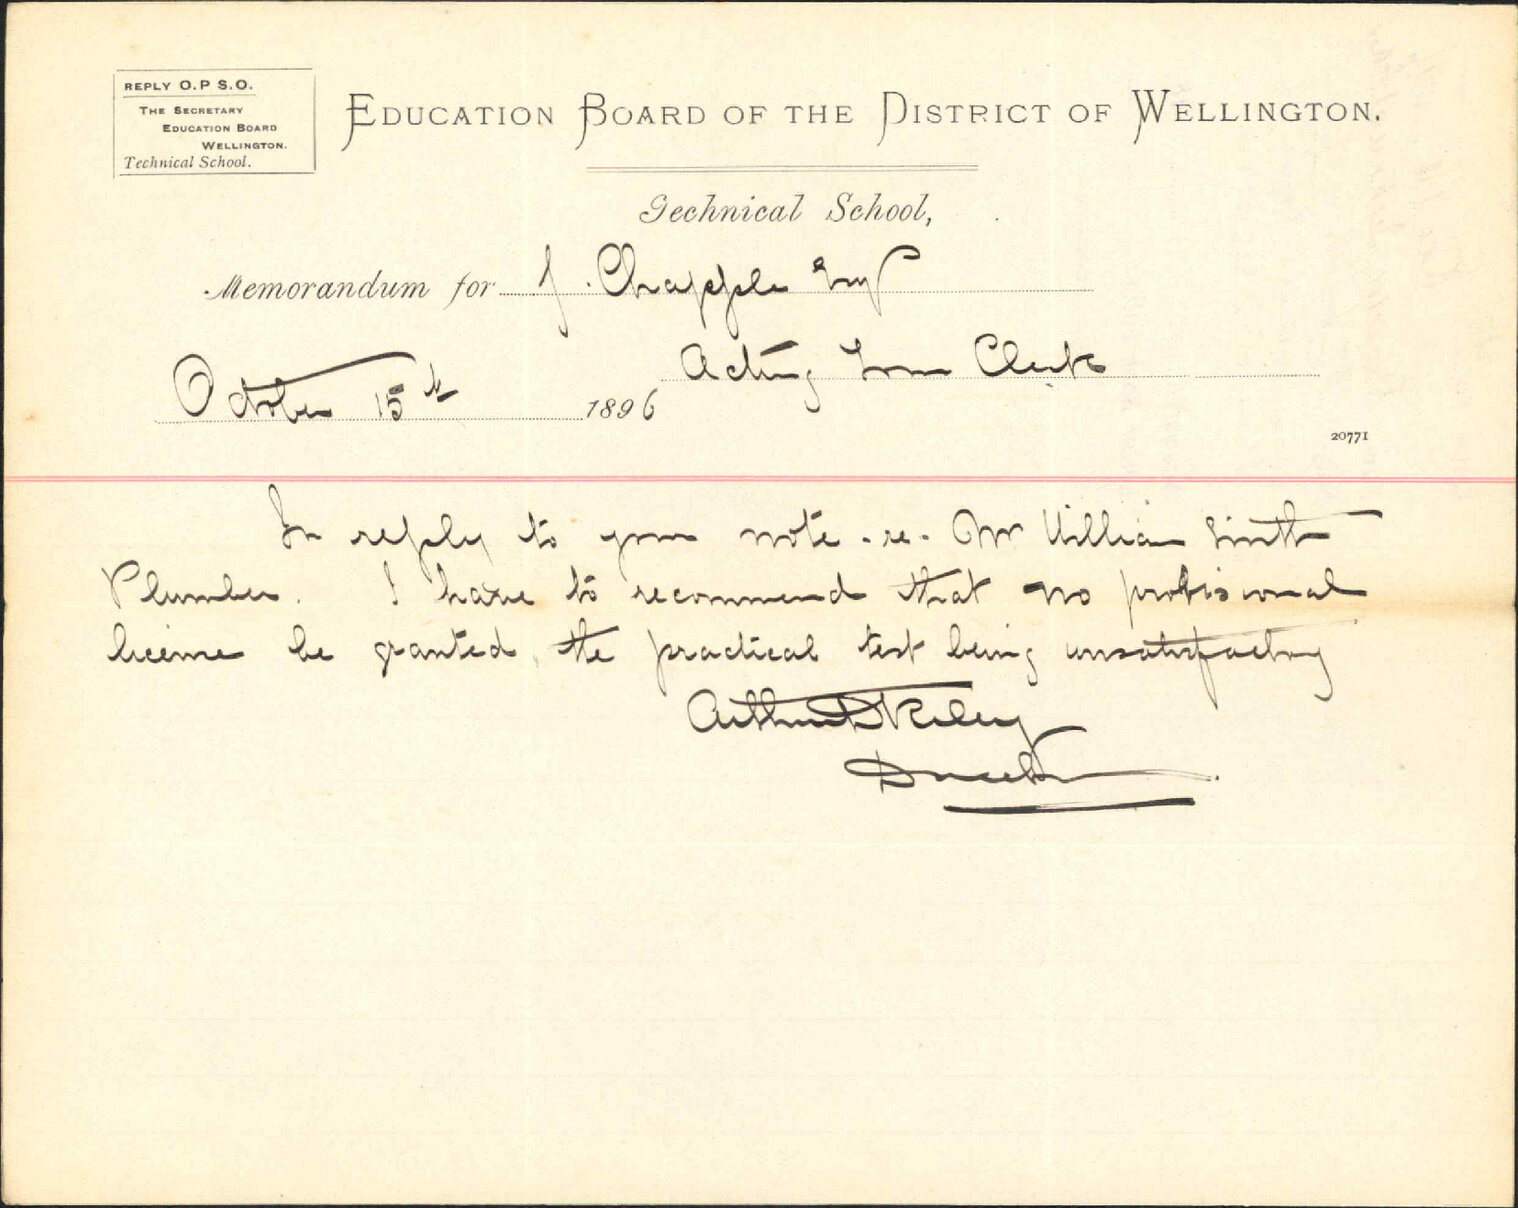 REPLY O.P S.O.
THE SECRETARY
EDUCATION BOARD
WELLINGTON.
Technical School.
EDUCATION BOARD OF THE DISTRICT OF WELLINGTON.
Technical School,
Memorandum for J. Chapple Esq
Acting Town Clerk
October 15th 1896
20771
In reply to your note -re- Mr William Smith
Plumber. I have to recommend that no provisional
license be granted, the practical test being unsatisfactory
Arthur D Riley
Director.